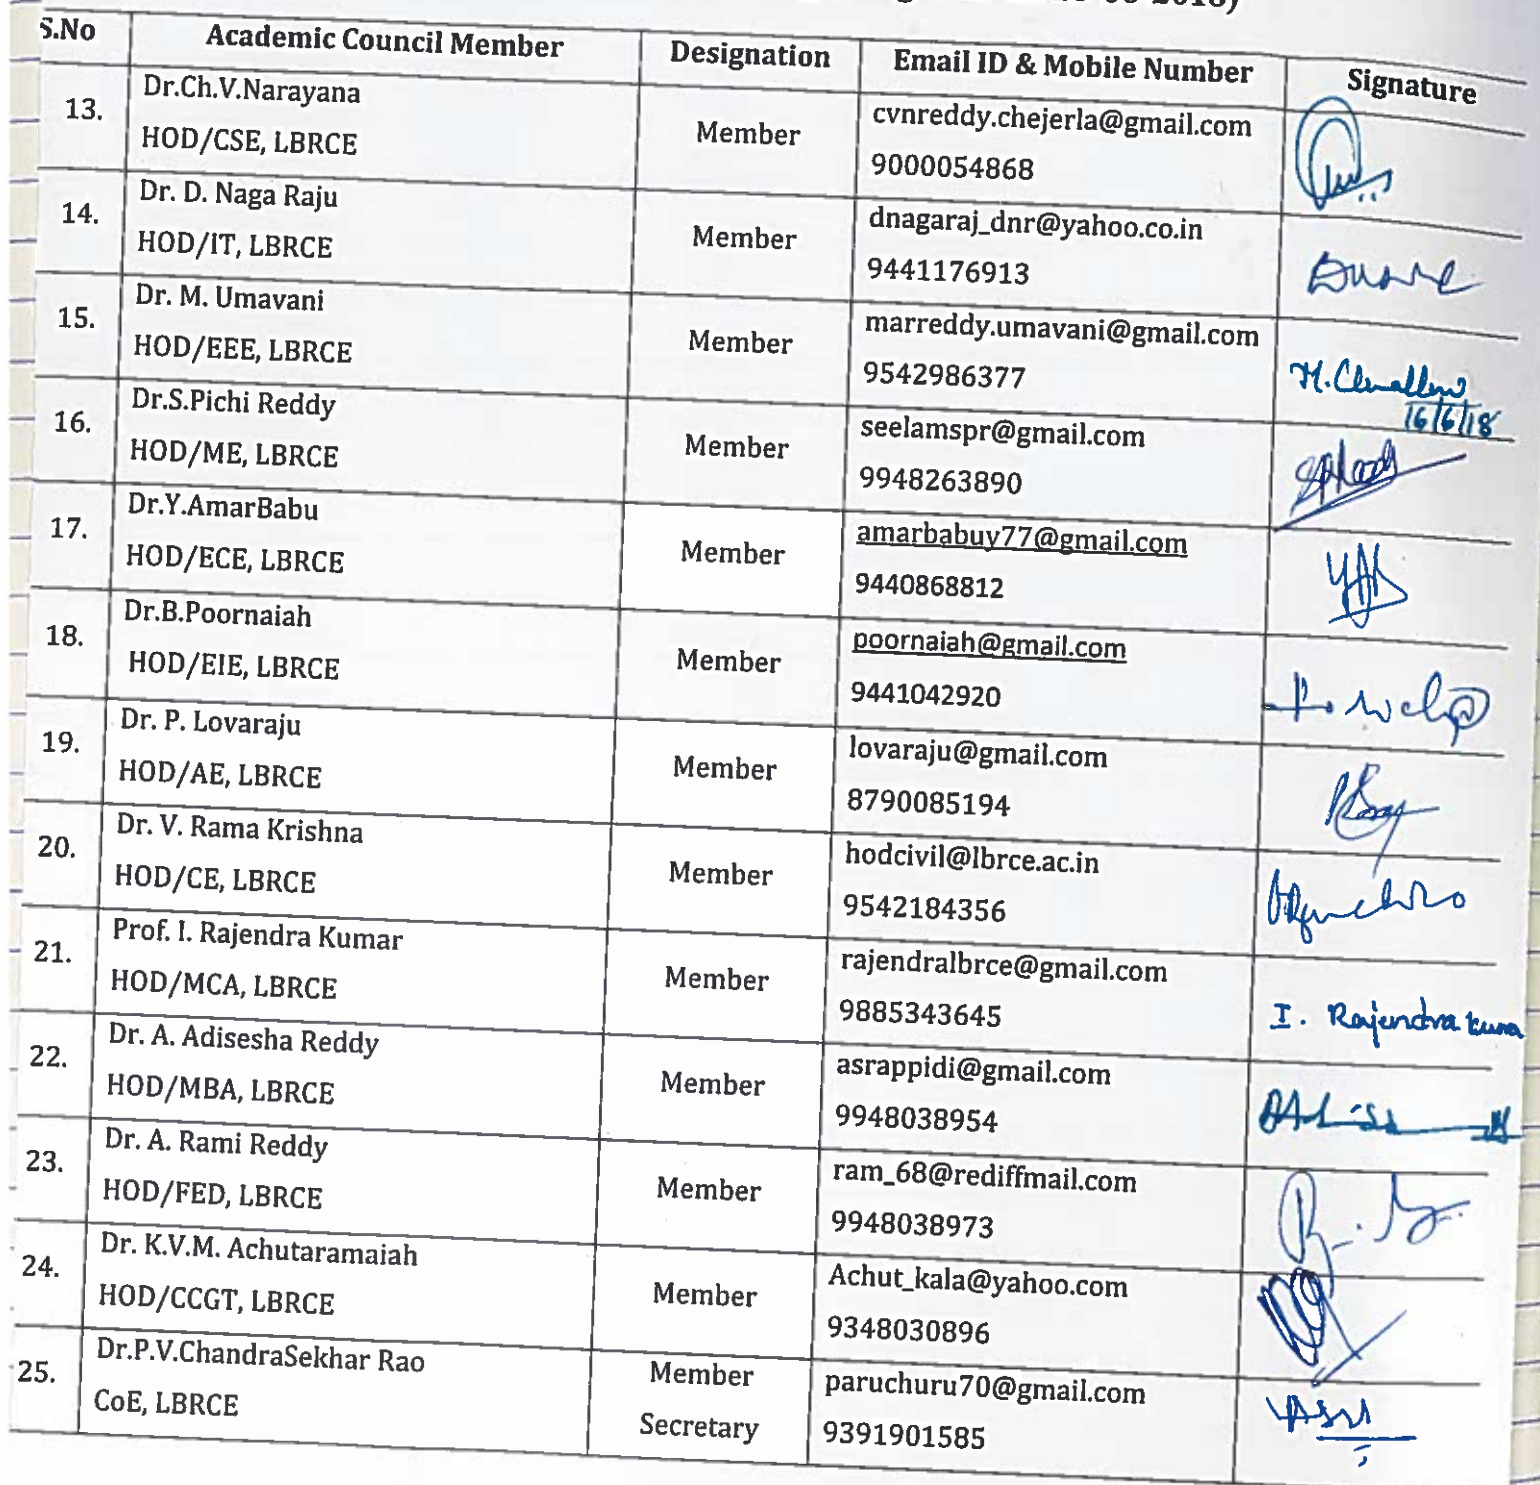 2018)
S.No Academic Council Member Designation Email ID & Mobile Number Signature
13. Dr.Ch.V.Narayana
HOD/CSE, LBRCE
Member
cvnreddy.chejerla@gmail.com
9000054868
14. Dr. D. Naga Raju
HOD/IT, LBRCE
Member
dnagaraj_dnr@yahoo.co.in
9441176913
15. Dr. M. Umavani
HOD/EEE, LBRCE
Member
marreddy.umavani@gmail.com
9542986377
16/6/18
16. Dr.S.Pichi Reddy
HOD/ME, LBRCE
Member
seelamspr@gmail.com
9948263890
17. Dr.Y.AmarBabu
HOD/ECE, LBRCE
Member
amarbabuy77@gmail.com
9440868812
18. Dr.B.Poornaiah
HOD/EIE, LBRCE
Member
poornaiah@gmail.com
9441042920
19. Dr. P. Lovaraju
HOD/AE, LBRCE
Member
lovaraju@gmail.com
8790085194
20. Dr. V. Rama Krishna
HOD/CE, LBRCE
Member
hodcivil@lbrce.ac.in
9542184356
21. Prof. I. Rajendra Kumar
HOD/MCA, LBRCE
Member
rajendralbrce@gmail.com
9885343645
I. Rajendra
22. Dr. A. Adisesha Reddy
HOD/MBA, LBRCE
Member
asrappidi@gmail.com
9948038954
23. Dr. A. Rami Reddy
HOD/FED, LBRCE
Member
ram_68@rediffmail.com
9948038973
24. Dr. K.V.M. Achutaramaiah
HOD/CCGT, LBRCE
Member
Achut_kala@yahoo.com
9348030896
25. Dr.P.V.ChandraSekhar Rao
CoE, LBRCE
Member
Secretary
paruchuru70@gmail.com
9391901585